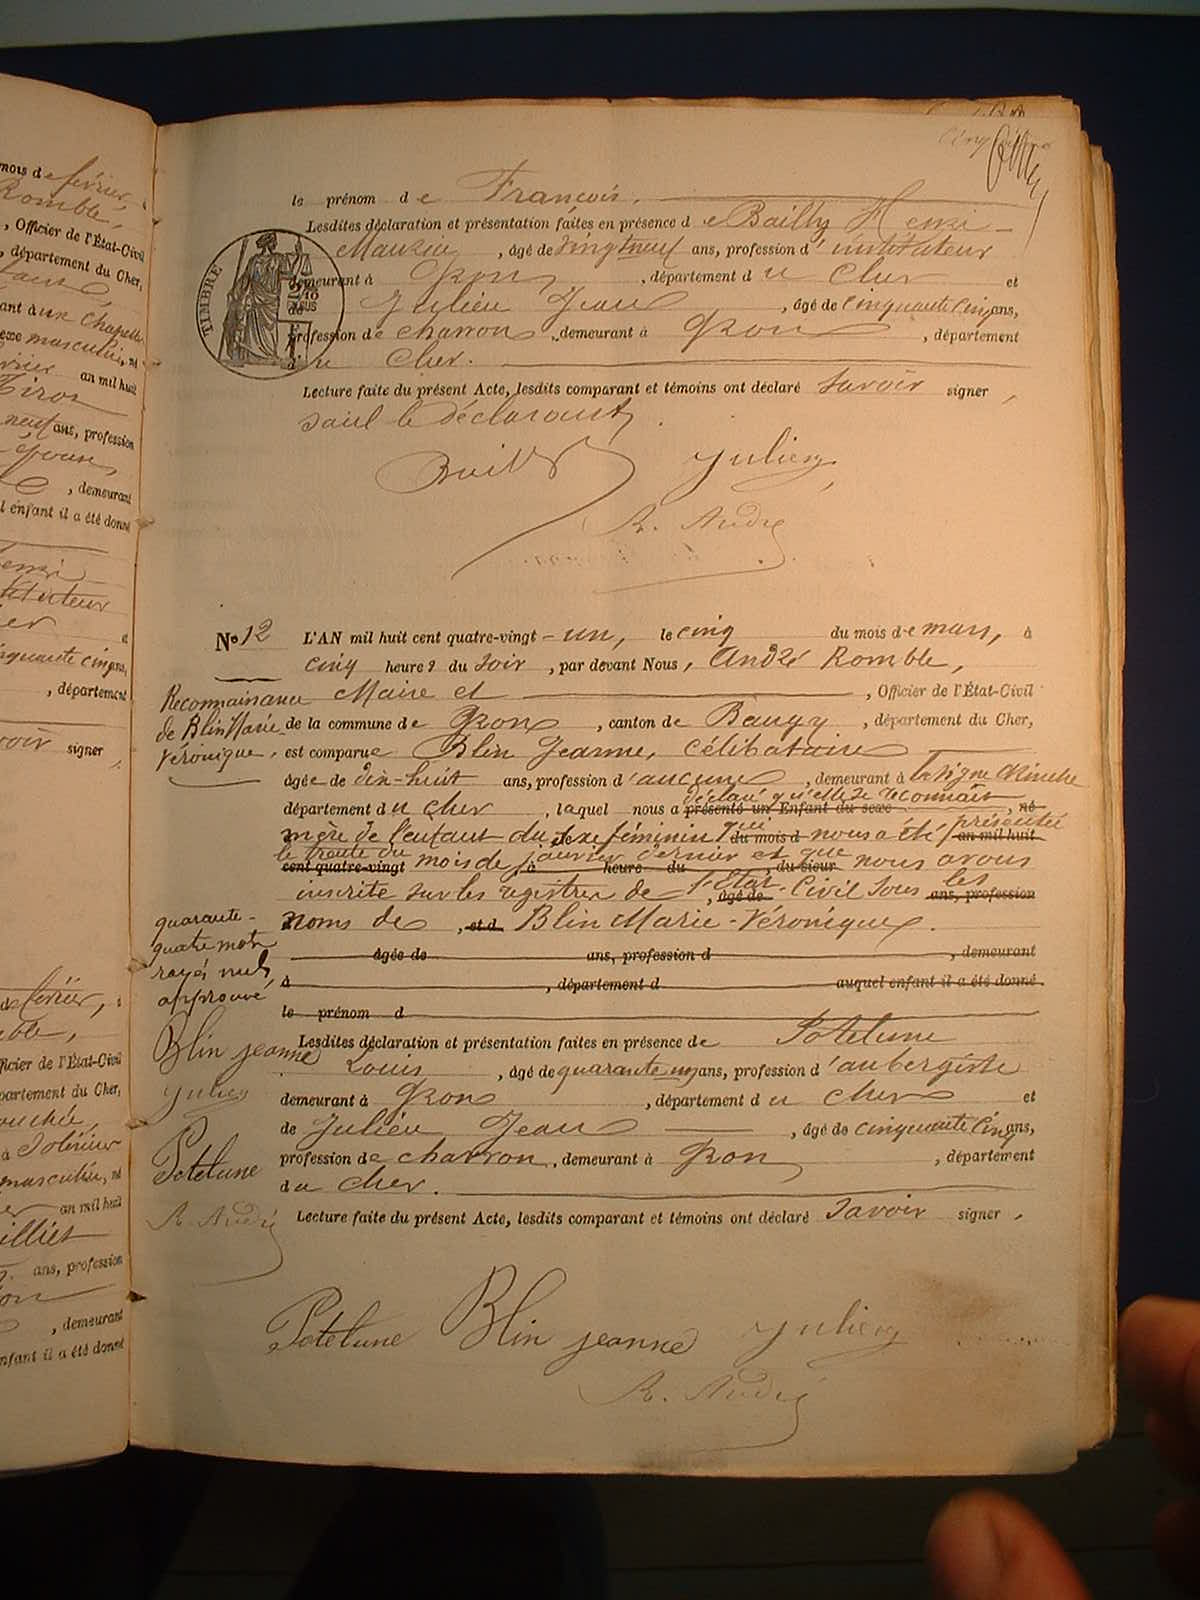 mois de février,
Romblé,
, Officier de l'État-Civil
, département du Cher,
masculin, né
an mil huit
neuf ans, profession
, demeurant
l enfant il a été donné
et
cinquante cinq ans,
, département
savoir signer
le prénom de François.
Lesdites déclaration et présentation faites en présence de Bailly Henri
Maurice, âgé de vingt neuf ans, profession d'instituteur
TIMBRE
demeurant à Gron, département du Cher et
de Julien Jean, âgé de cinquante cinq ans,
profession de charron, demeurant à Gron, département
du Cher.
Lecture faite du présent Acte, lesdits comparant et témoins ont déclaré savoir signer,
sauf le déclarant.
Bailly Julien
R. André
No 12 L'AN mil huit cent quatre-vingt-un, le cinq du mois de mars, à
cinq heures du soir, par devant Nous, André Romble,
Reconnaissance
de Blin Marie
Véronique.
Maire et, Officier de l'État-Civil
de la commune de Gron, canton de Baugy, département du Cher,
est comparue Blin Jeanne, célibataire
âgée de dix-huit ans, profession d'aucune, demeurant à la Vigne
département du Cher, laquel nous a présenté un Enfant du sexe, né
déclaré qu'elle se reconnait
mère de l'enfant du sexe féminin qui du mois d nous a été présenté an mil huit
le trente du mois de janvier dernier et que nous avons
cent quatre-vingt à heure du, du sieur
inscrite sur les registres de l'Etat-Civil sous les
, âgé de ans, profession
noms de, et d Blin Marie-Véronique.
quarante-
quatre mots
rayés nuls
approuvé
âgée de ans, profession d, demeurant
à, département d auquel enfant il a été donné
le prénom d
Blin jeanne
Julien
Potelune
R. André
Lesdites déclaration et présentation faites en présence de Potelune
Louis, âgé de quarante un ans, profession d'aubergiste
demeurant à Gron, département du Cher et
de Julien Jean, âgé de cinquante cinq ans,
profession de charron, demeurant à Gron, département
du Cher.
Lecture faite du présent Acte, lesdits comparant et témoins ont déclaré savoir signer.
Potelune Blin jeanne Julien
R. André
de février, à
fficier de l'État-Civil
partement du Cher,
masculin, né
an mil huit
ans, profession
, demeurant
nfant il a été donné